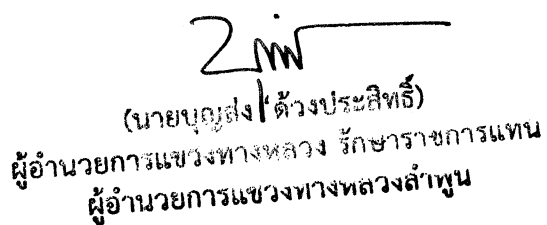 (นายบุญส่ง ด้วงประสิทธิ์)
ผู้อำนวยการแขวงทางหลวง รักษาราชการแทน
ผู้อำนวยการแขวงทางหลวงลำพูน